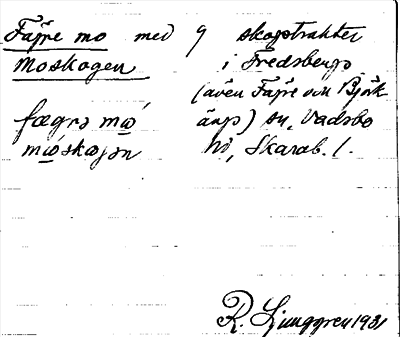 Fägre mo med 9 skogstrakter
Moskogen i Fredsbergs
(även Fägre och Björk
fægrə mὼ ängs) sn, Vadsbo
mὼskωgən hd, Skarab. l.
R. Ljunggren 1931